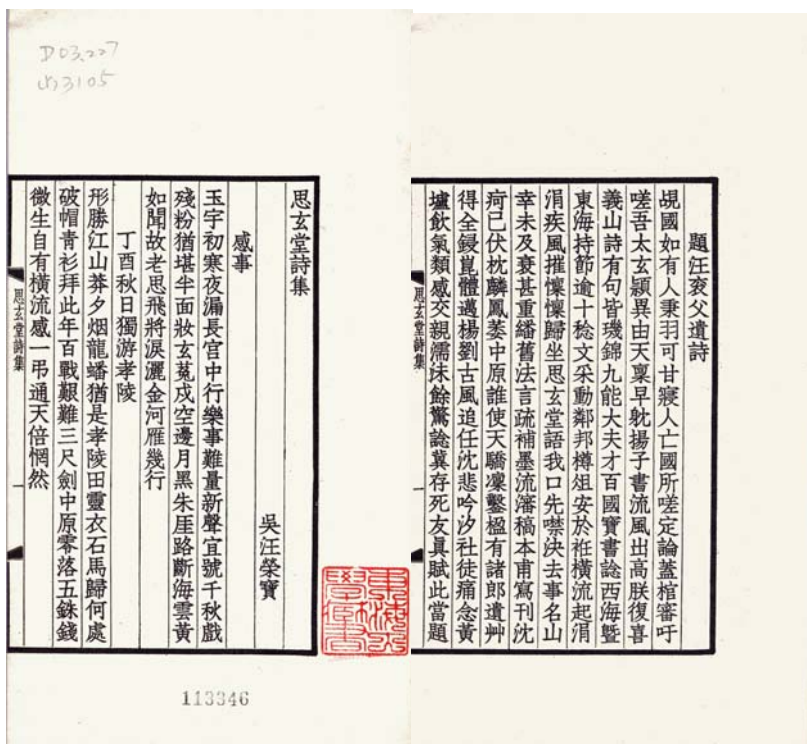 題汪袞父遺詩
覘國如有人秉羽可甘寢人亡國所嗟定論蓋棺審吁
嗟吾太玄穎異由天稟早躭揚子書流風出高朕復喜
義山詩有句皆璣錦九能大夫才百國寶書諗西海曁
東海持節逾十稔文采動鄰邦樽俎安於袵橫流起涓
涓疾風摧懍懍歸坐思玄堂語我口先噤決去事名山
幸未及衰甚重繙舊法言疏補墨流瀋稿本甫寫刊沈
疴已伏枕麟鳳萎中原誰使天驕凜鑿楹有諸郎遺艸
得全鋟崑體邁楊劉古風追任沈悲吟汐社徒痛念黃
壚飲氣類感交親濡沫餘驚諗冀存死友眞賦此當題
思玄堂詩集
D03.227
3105
思玄堂詩集
吳汪榮寶
感事
玉宇初寒夜漏長官中行樂事難量新聲宜號千秋戲
殘粉猶堪半面妝玄菟戍空邊月黑朱厓路斷海雲黃
如聞故老思飛將淚灑金河雁幾行
丁酉秋日獨游孝陵
形勝江山莽夕烟龍蟠猶是孝陵田靈衣石馬歸何處
破帽靑衫拜此年百戰艱難三尺劍中原零落五銖錢
微生自有橫流感一弔通天倍惘然
思玄堂詩集
一
113346